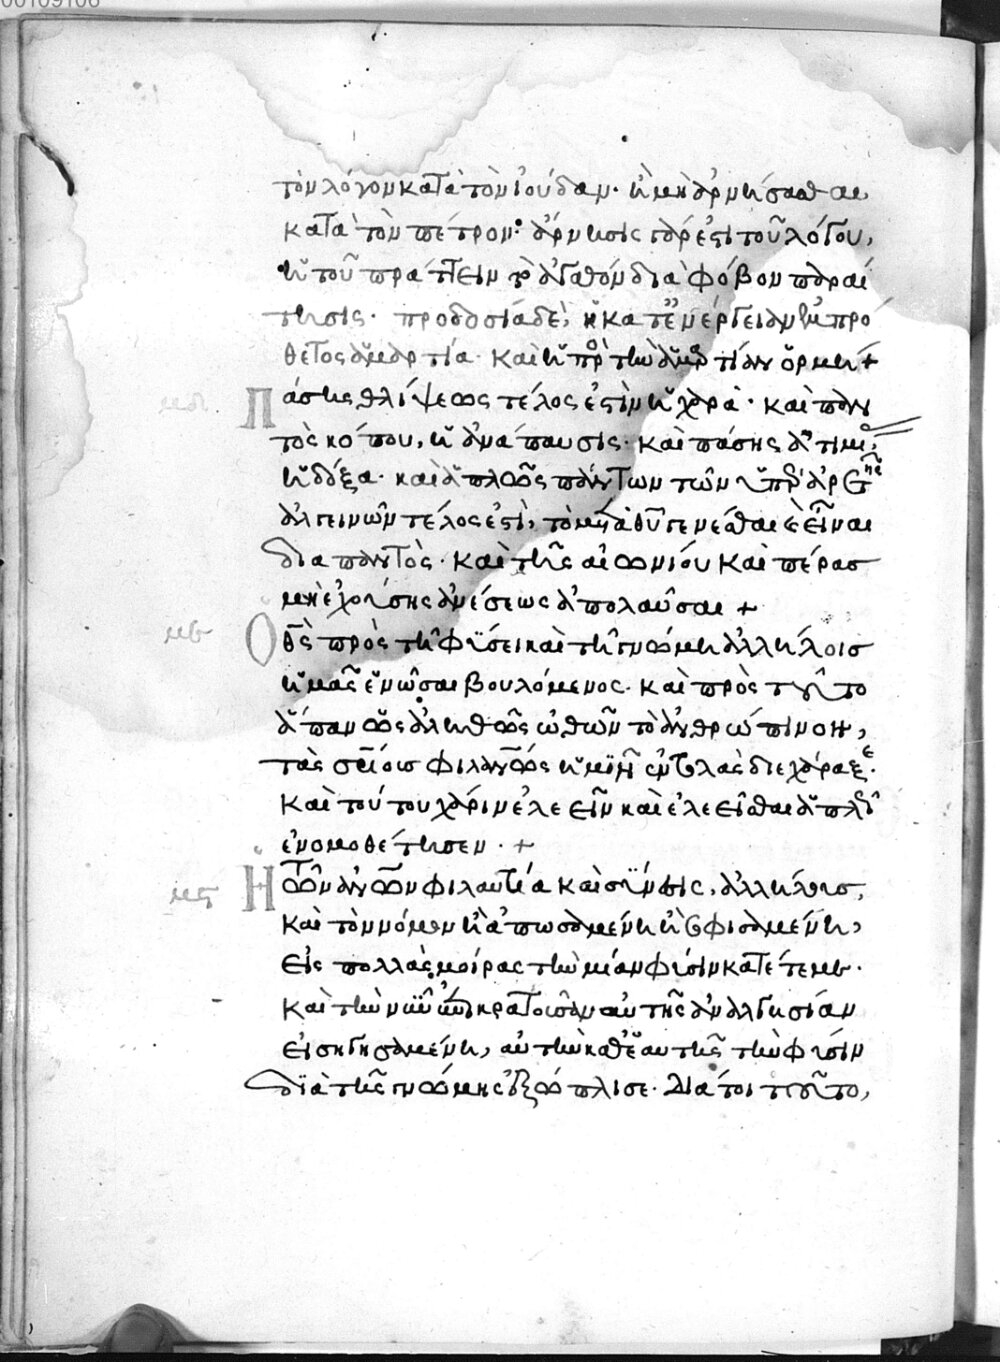 τὸν λόγον κατὰ τὸν ἰούδαν· ἢ μὴ ἀρνήσασθαι
κατὰ τὸν πέτρον· ἄρνησις γάρ ἐστι τοῦ λόγου,
ἡ τοῦ πράττειν τὸ ἀγαθὸν διὰ φόβον παραί
τησις· προδοσία δὲ, ἡ κατ' ἐνέργειαν ἐμπρό
θετος ἁμαρτία· καὶ ἡ πρὸ τὴν ἁμαρτίαν ὁρμή +
Πάσης θλίψεως τέλος ἐστὶν ἡ χαρά· καὶ παν
τὸς κόπου, ἡ ἀνάπαυσις· καὶ πάσης ἀτιμίας,
ἡ δόξα· καὶ ἁπλῶς πάντων τῶν ὑπὲρ ἀρετῆς
ἀλγεινῶν τέλος ἐστὶ, τὸ μετὰ θῦ γενέσθαι καὶ εἶναι
διαπαντὸς· καὶ τῆς αἰωνίου καὶ πέρασ
μὴ ἐχούσης ἀνέσεως ἀπολαῦσαι +
μβ Ὁ θς πρὸς τῇ φύσει καὶ τῇ γνώμῃ ἀλλήλοισ
ἡμᾶς ἑνῶσαι βουλόμενος· καὶ πρὸς τοῦτο
ἅπαν ὡς ἀληθῶς ὠθῶν τὸ ἀνθρώπινον,
τὰς σωτηρίους φιλανως ἡμῖν ἐντολὰς διεχάραξε·
καὶ τούτου χάριν ἐλεεῖν καὶ ἐλεεῖσθαι ἁπλῶς
ἐνομοθέτησεν· +
Ἡ τῶν ανων φιλαυτία καὶ σύνεσις, ἀλλήλους,
καὶ τὸν νόμον ἢ ἀπωσαμένη ἢ σοφισαμένη,
εἰς πολλὰς μοίρας τὴν μίαν φύσιν κατέτεμε·
καὶ τὴν νῦν ἐπικρατοῦσαν αὐτῆς ἀναλγησίαν
εἰσηγησαμένη, αὐτὴν καθ' ἑαυτῆς τὴν φύσιν
διὰ τῆς γνώμης ἐξώπλισε· Διά τοι τοῦτο,